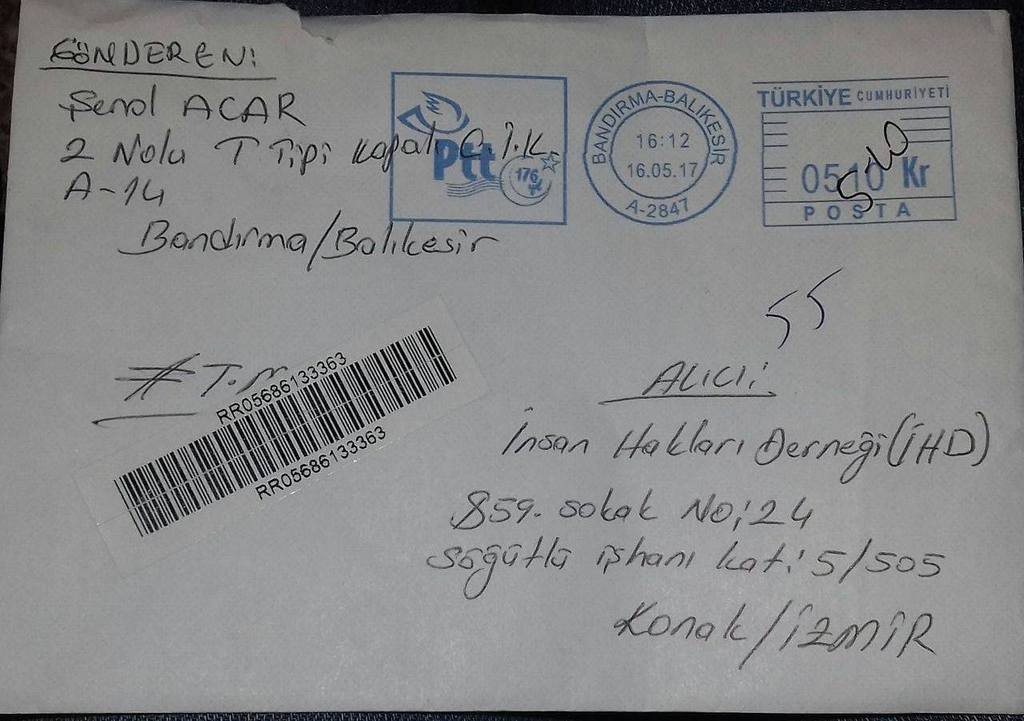 GÖNDEREN:
Şenol ACAR
2 Nolu T Tipi Kapalı C.İ.K.
A-14
Bandırma/Balıkesir
Ptt
176
BANDIRMA-BALIKESİR
16:12
16.05.17
A-2847
TÜRKİYE CUMHURİYETİ
0510 Kr
510
POSTA
55
RR05686133363
RR05686133363
ALICI:
İnsan Hakları Derneği (İHD)
859. sokak No: 24
Söğütlü işhanı kat: 5/505
Konak/İZMİR